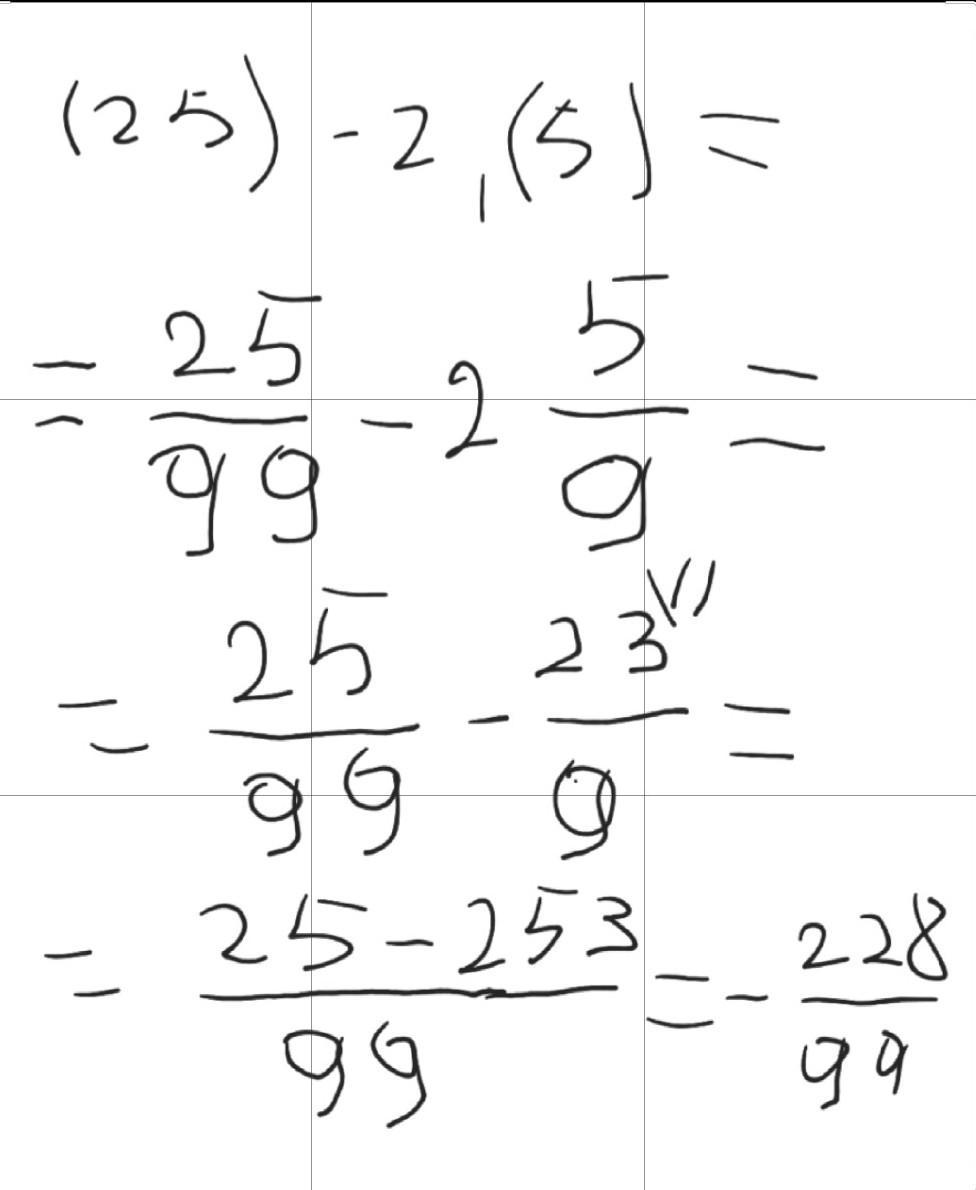 (25) - 2,(5) =
= 25/99 - 2 5/9 =
= 25/99 - 23\11/9 =
= 25 - 253/99 = - 228/99